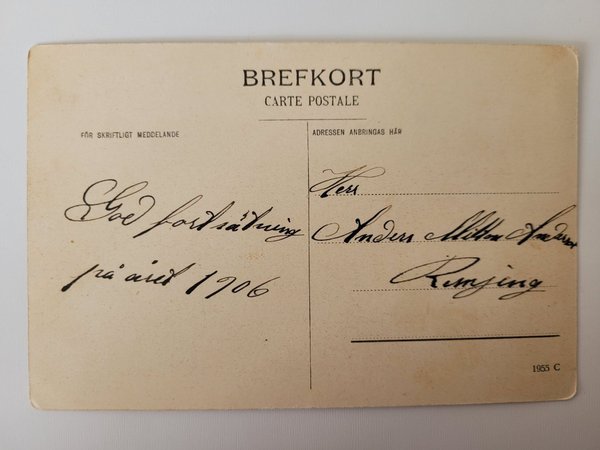 BREFKORT
CARTE POSTALE
FÖR SKRIFTLIGT MEDDELANDE
ADRESSEN ANBRINGAS HÄR
God fortsätning
på året 1906
Herr
Anders Milton
1955 C